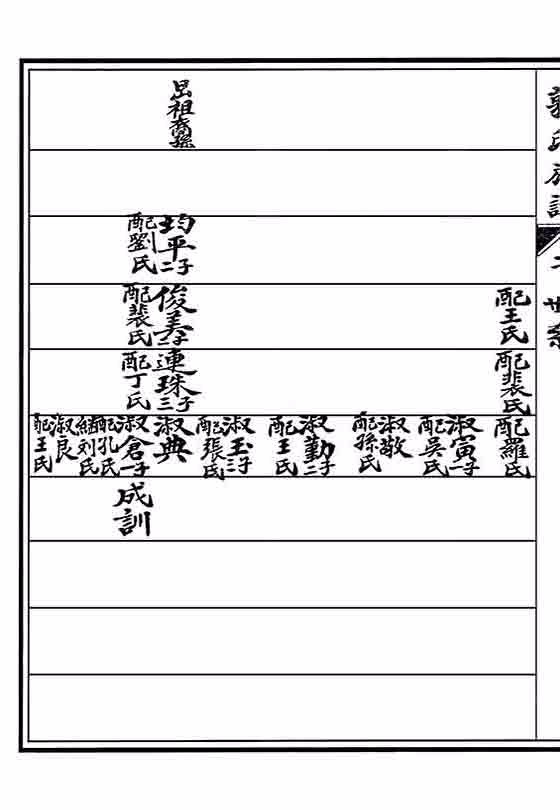 郭氏族譜
二世系
祖裔孫
均平二子
配劉氏
配王氏
俊美二子
配裴氏
配裴氏
連珠三子
配丁氏
配羅氏
淑寅一子
配吳氏
淑敬
配孫氏
淑勤二子
配王氏
淑玉三子
配張氏
淑典
淑倉一子
配孔氏
繼刘氏
淑良
配王氏
成訓